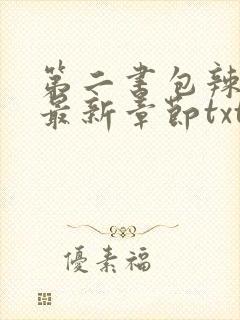 第二書包辣
最新章節txt
優素福